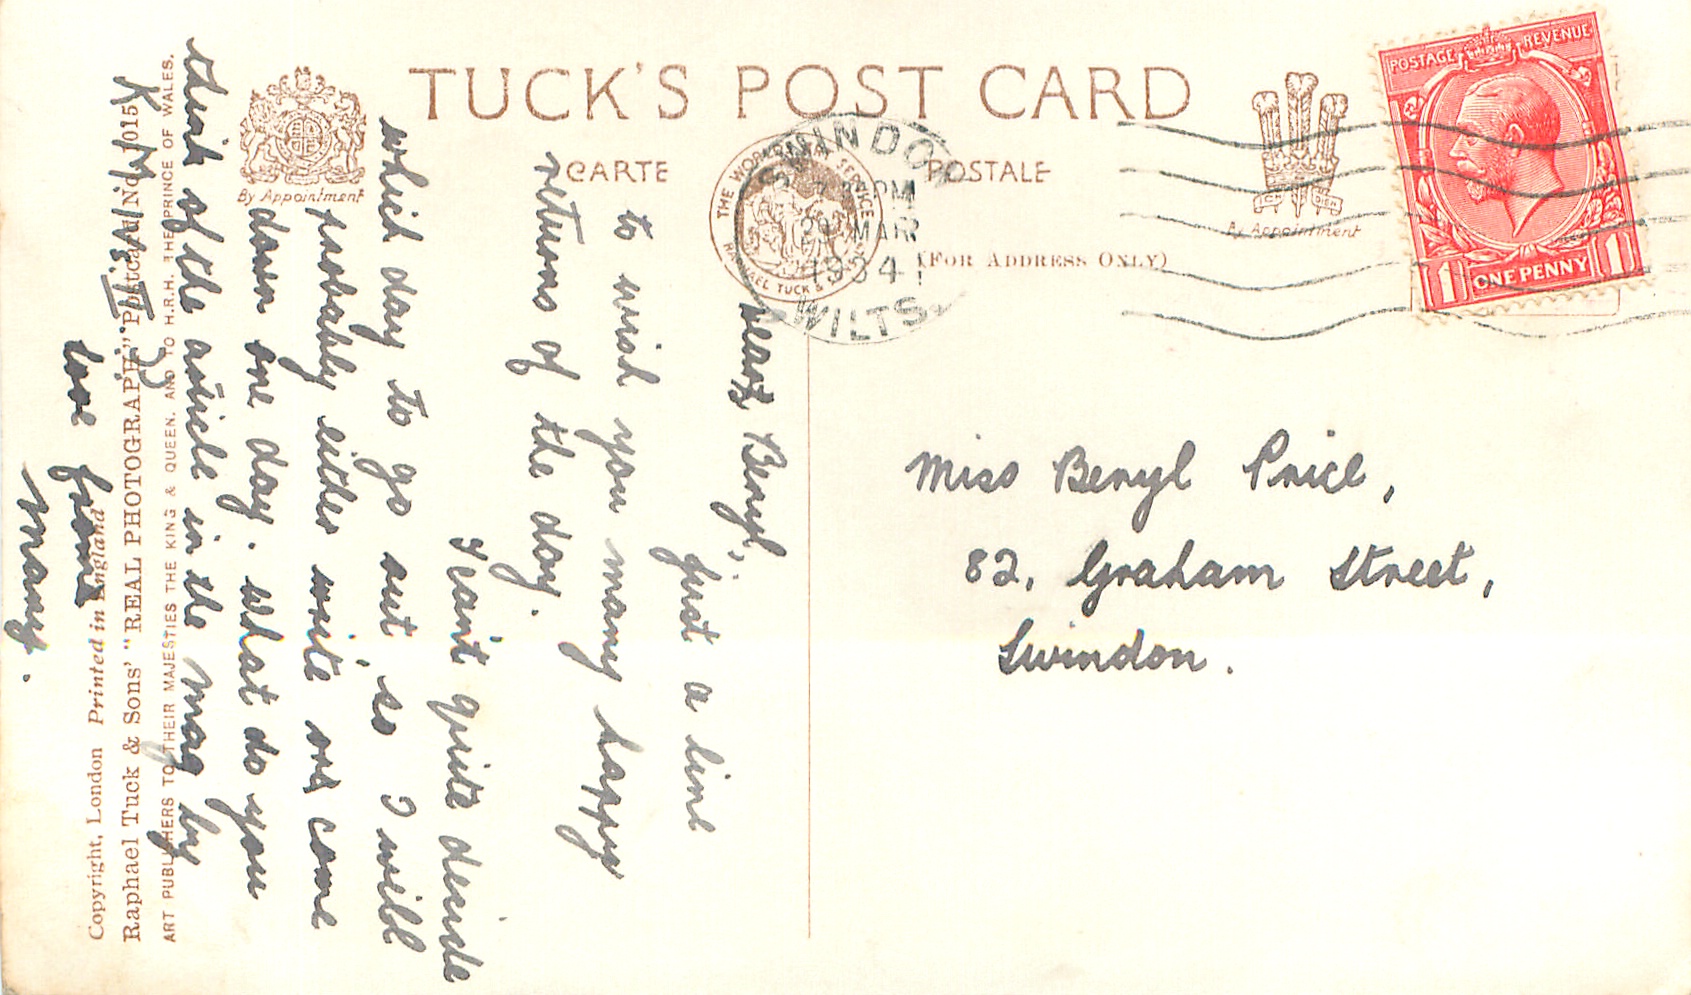 TUCK'S POST CARD
CARTE POSTALE
(FOR ADDRESS ONLY)
By Appointment
By Appointment
THE WORLD SERVICE
RAPHAEL TUCK &
SWINDON
PM
MAR
1934
WILTS.
POSTAGE REVENUE
1 ONE PENNY 1
Miss Beryl Price,
82, Graham Street,
Swindon.
Dear Beryl,
Just a line
to wish you many happy
returns of the day.
I can't quite decide
which day to go out, so I will
probably either write or come
down one day. What do you
think of the article in the mag by
K. M.
love from
Mary.
ART PUBLISHERS TO THEIR MAJESTIES THE KING & QUEEN, AND TO H.R.H. THE PRINCE OF WALES.
Raphael Tuck & Sons' "REAL PHOTOGRAPH" Postcard No.
Copyright, London Printed in England